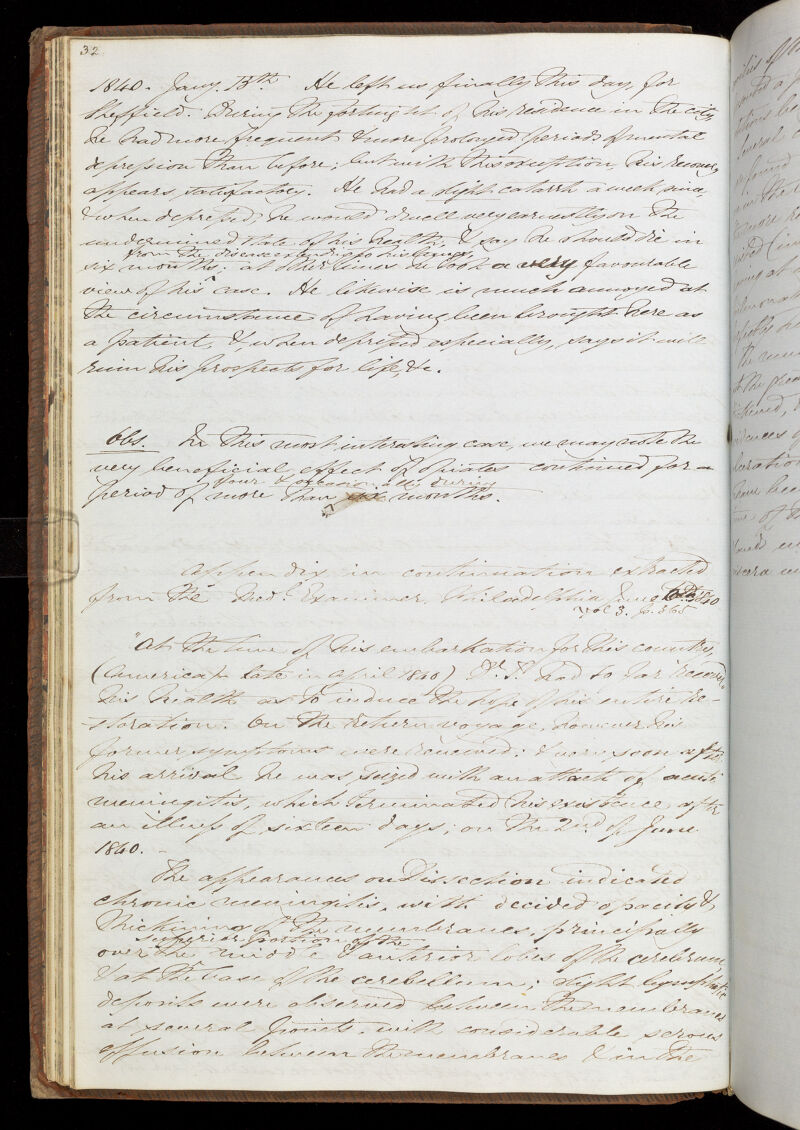 32
1840. Jany. 13th. He left us finally this day, for
Sheffield. During the fortnight of his residence in the city,
he had more frequent & more prolonged periods of mental
depression than before; but with this exception, his recovery
appears satisfactory. He had a slight catarrh a week since,
& when depressed, he would dwell very earnestly on the
undermined state of his health, & say he should die in
from the disease extending to his lungs,
six months; at other times he took a very favourable
view of his case. He likewise is much annoyed at
the circumstance of having been brought here as
a patient, &, when depressed especially, says it will
ruin his prospects for life, &c.
Obs. In this most interesting case, we may note the
very beneficial effect of opiates continued for a
four & occasionally during
period of more than six months.
Appendix in continuation extracted
from the Med. Examiner, Philadelphia June 1840
Vol 3. p. 365
"At the time of his embarkation for this country,
(America) late in April 1840) Dr. had so far recovered
his health as to induce the hope of his entire re-
-storation. On the return voyage, however his
former symptoms were renewed: & very soon after
his arrival he was seized with an attack of acute
meningitis, which terminated his existence, after
an illness of sixteen days; on the 2nd of June
1840. -
The appearances on Dissection indicated
chronic meningitis, with decided opacity &
thickening of the membranes, principally
superior portion of the
over the middle & anterior lobes of the cerebrum,
& at the base of the cerebellum; slight lymphatic
deposits were observed between the membranes
at several points, with considerable serous
effusion between the membranes & in the